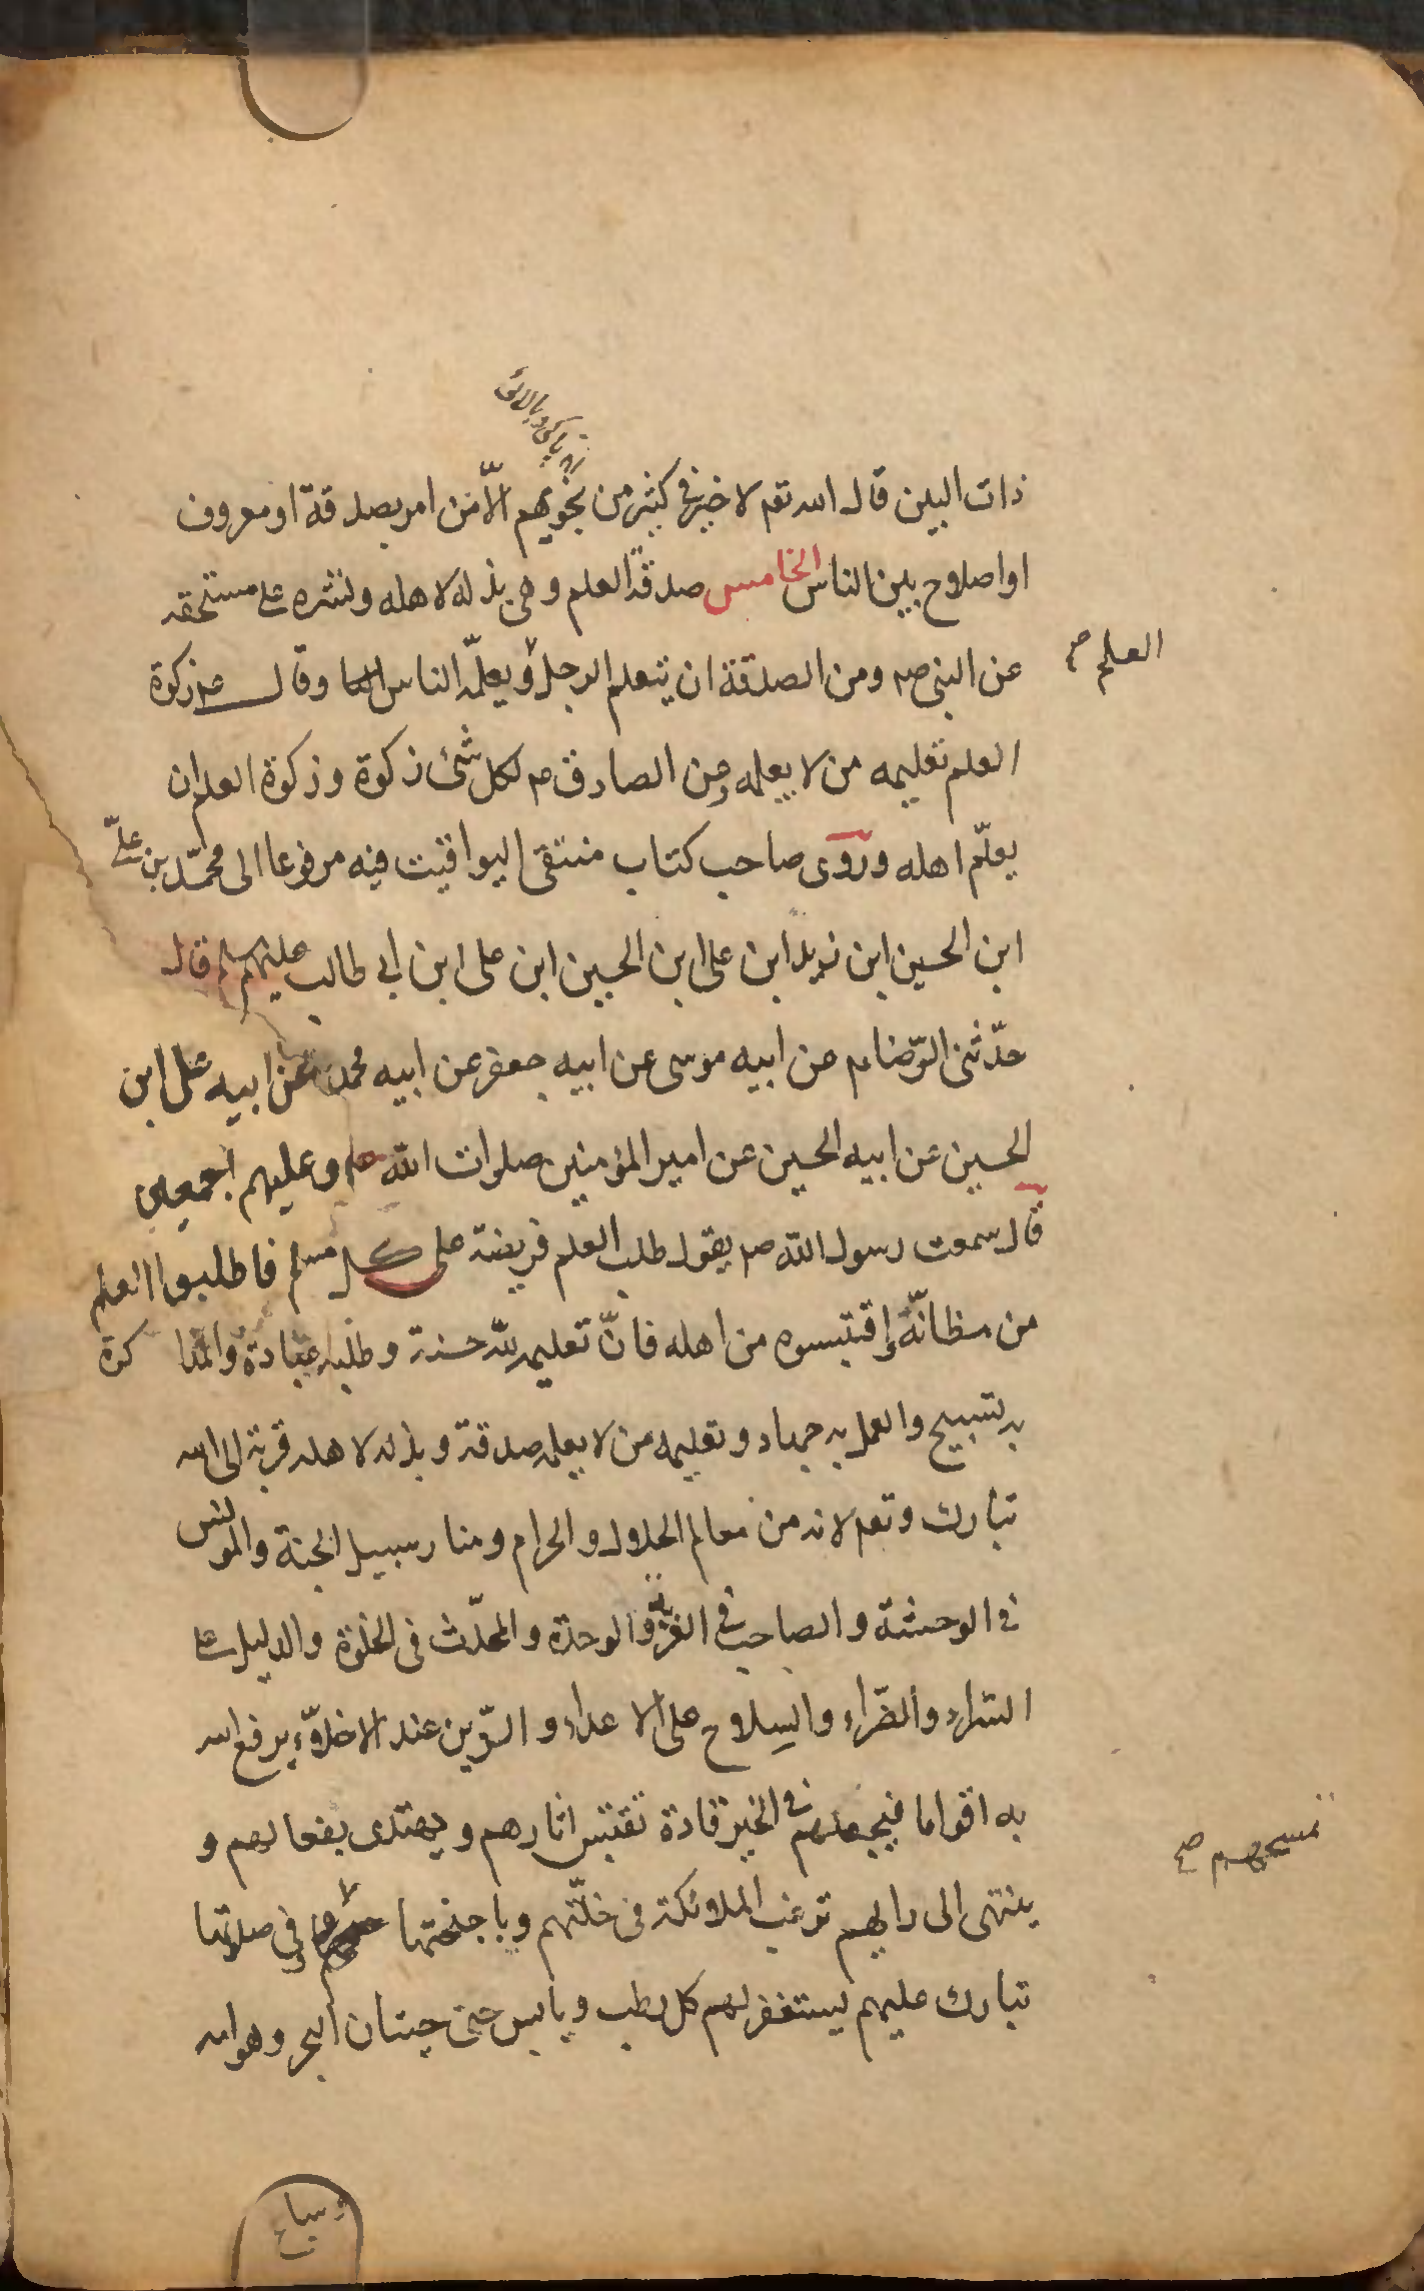 ذات البين قال الله تعم لا خير فى كثير من نجويهم الّا من امر بصدقة او معروف
او اصلاح بين الناس الخامس صدقة العلم وهى بذله لاهله ونشره على مستحقه
العلم صح
عن النبى صم ومن الصدقة ان يتعلم الرجل ويعلّمه الناس وقال عم زكوة
العلم تعليمه من لا يعلمه وعن الصادق عم لكل شئ زكوة وزكوة العلم ان
يعلّم اهله وروى صاحب كتاب منتقى اليواقيت فيه مرفوعا الى محمّد بن علىّ
ابن الحسين ابن زيد ابن على ابن الحسين ابن على ابن ابى طالب عليهم السلم قال
حدّثنى الرّضا عم عن ابيه موسى عن ابيه جعفر عن ابيه محمد عن ابيه على ابن
الحسين عن ابيه الحسين عن امير المؤمنين صلوات الله عليه وعليهم اجمعين
قال سمعت رسول الله صم يقول طلب العلم فريضة على كل مسلم فاطلبوا العلم
من مظانّه واقتبسوه من اهله فانّ تعليمه لله حسنة وطلبه عبادة والمذا كرة
به تسبيح والعمل به جهاد وتعليمه من لا يعلمه صدقة وبذله لاهله قربة الى الله
تبارك وتعم لانه من معالم الحلال والحرام ومنار سبيل الجنة والمونس
فى الوحشة والصاحب فى الغربة والوحدة والمحدّث فى الخلوة والدليل على
السّراء والضّراء والسِلاح على الاعداء والزّين عند الاخلّاء يرفع الله
به اقواما فيجعلهم فى الخير قادة تقتبس اثارهم ويهتدى بفعالهم و
تمسحهم صح
ينتهى الى رايهم ترغب الملائكة فى خلّتهم وباجنحتها وفى صلوتها
تبارك عليهم يستغفر لهم كل رطب ويابس حتى حيتان البحر وهوامه
وسباع